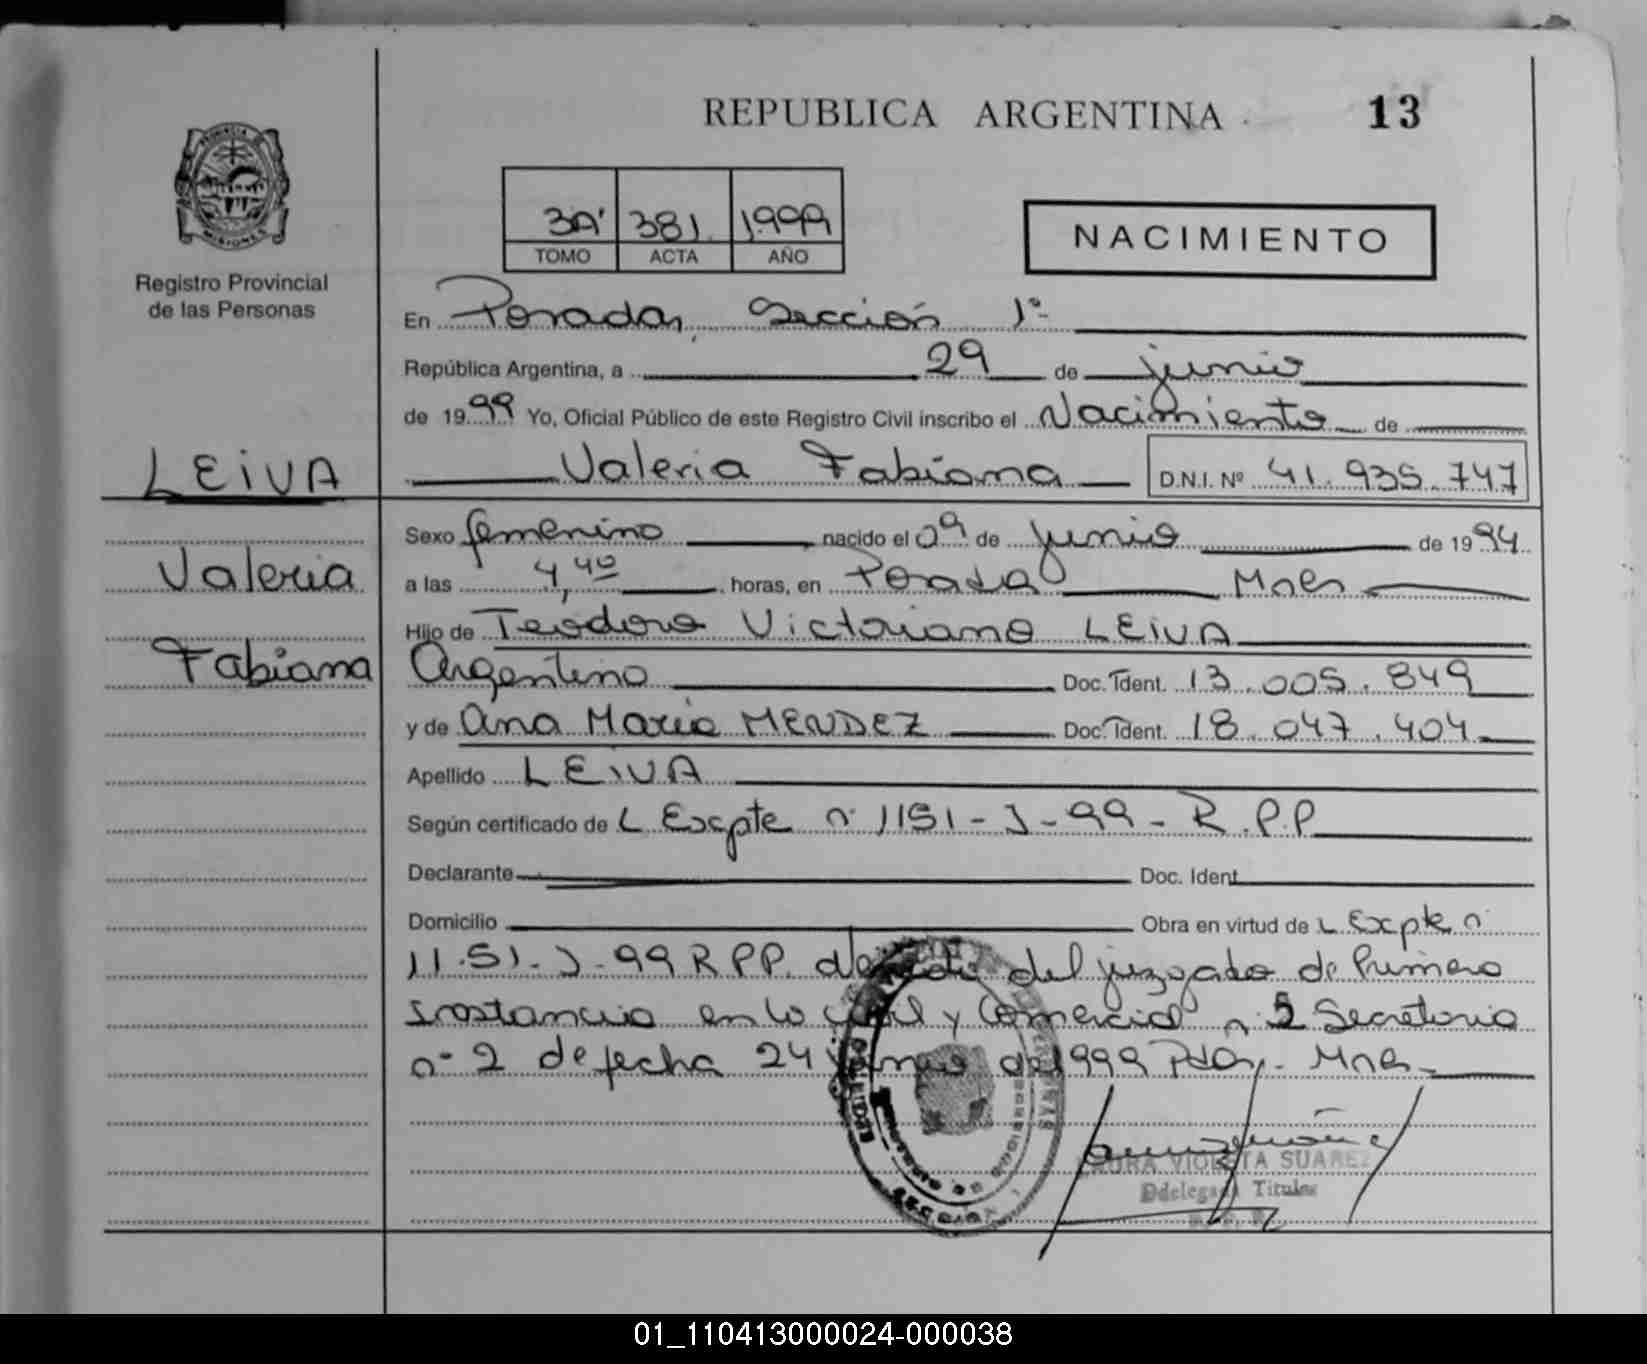 REPUBLICA ARGENTINA 13
PROVINCIA DE
MISIONES
Registro Provincial
de las Personas
3A' 381 1999
TOMO ACTA AÑO
NACIMIENTO
En Posadas, Sección 1°
República Argentina, a 29 de junio
de 1999 Yo, Oficial Público de este Registro Civil inscribo el Nacimiento de
LEIVA
Valeria Fabiana D.N.I. Nº 41.935.747
Sexo femenino nacido el 09 de junio de 1994
Valeria
a las 4,40 horas, en Posadas Mnes
Hijo de Teodoro Victoriano LEIVA
Fabiana
Argentino Doc. Ident. 13.005.849
y de Ana María MENDEZ Doc. Ident. 18.047.404
Apellido LEIVA
Según certificado de L Excpte n° 1151-J-99-R.P.P
Declarante Doc. Ident
Domicilio Obra en virtud de L Excpte n°
1151-J-99 R PP. del juzgado de Primera
Instancia en lo Civil y Comercial n° 5 Secretaria
n° 2 de fecha 24 junio de 1999 Pdas. Mnes-
LAURA VIOLETA SUAREZ
Delegada Titular
R. P. P.
01_110413000024-000038